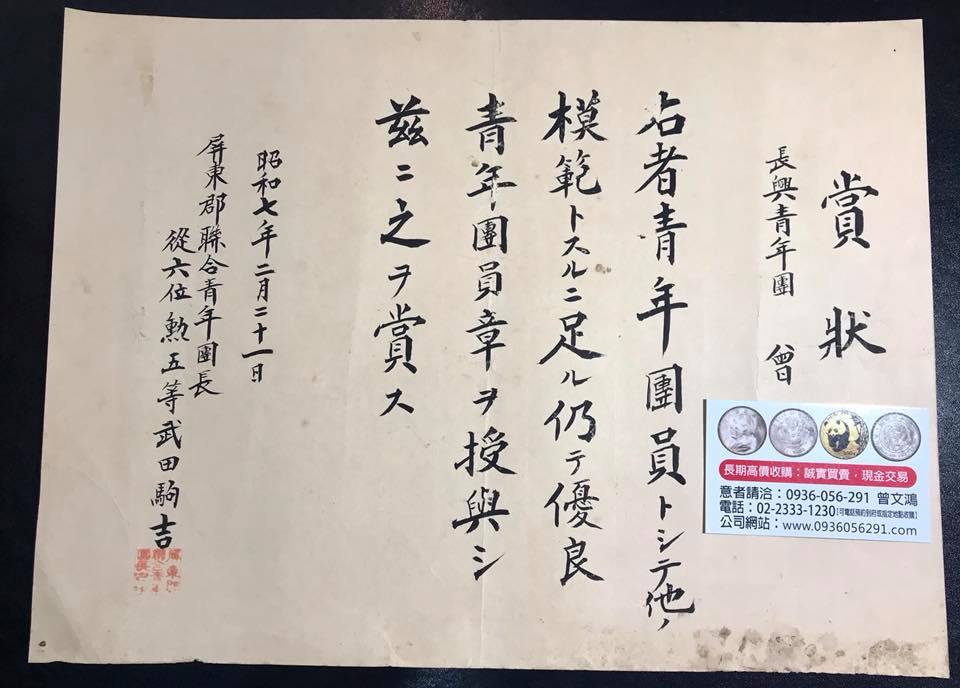 賞狀
長興青年團 曾
右者青年團員トシテ他ノ
模範トスルニ足ル仍テ優良
青年團員章ヲ授與シ
茲ニ之ヲ賞ス
昭和七年二月二十一日
屏東郡聯合青年團長
從六位勲五等武田駒吉
長期高價收購：誠實買賣，現金交易
意者請洽：0936-056-291 曾文鴻
電話：02-2333-1230【可電話預約到府或指定地點收購】
公司網站：www.0936056291.com